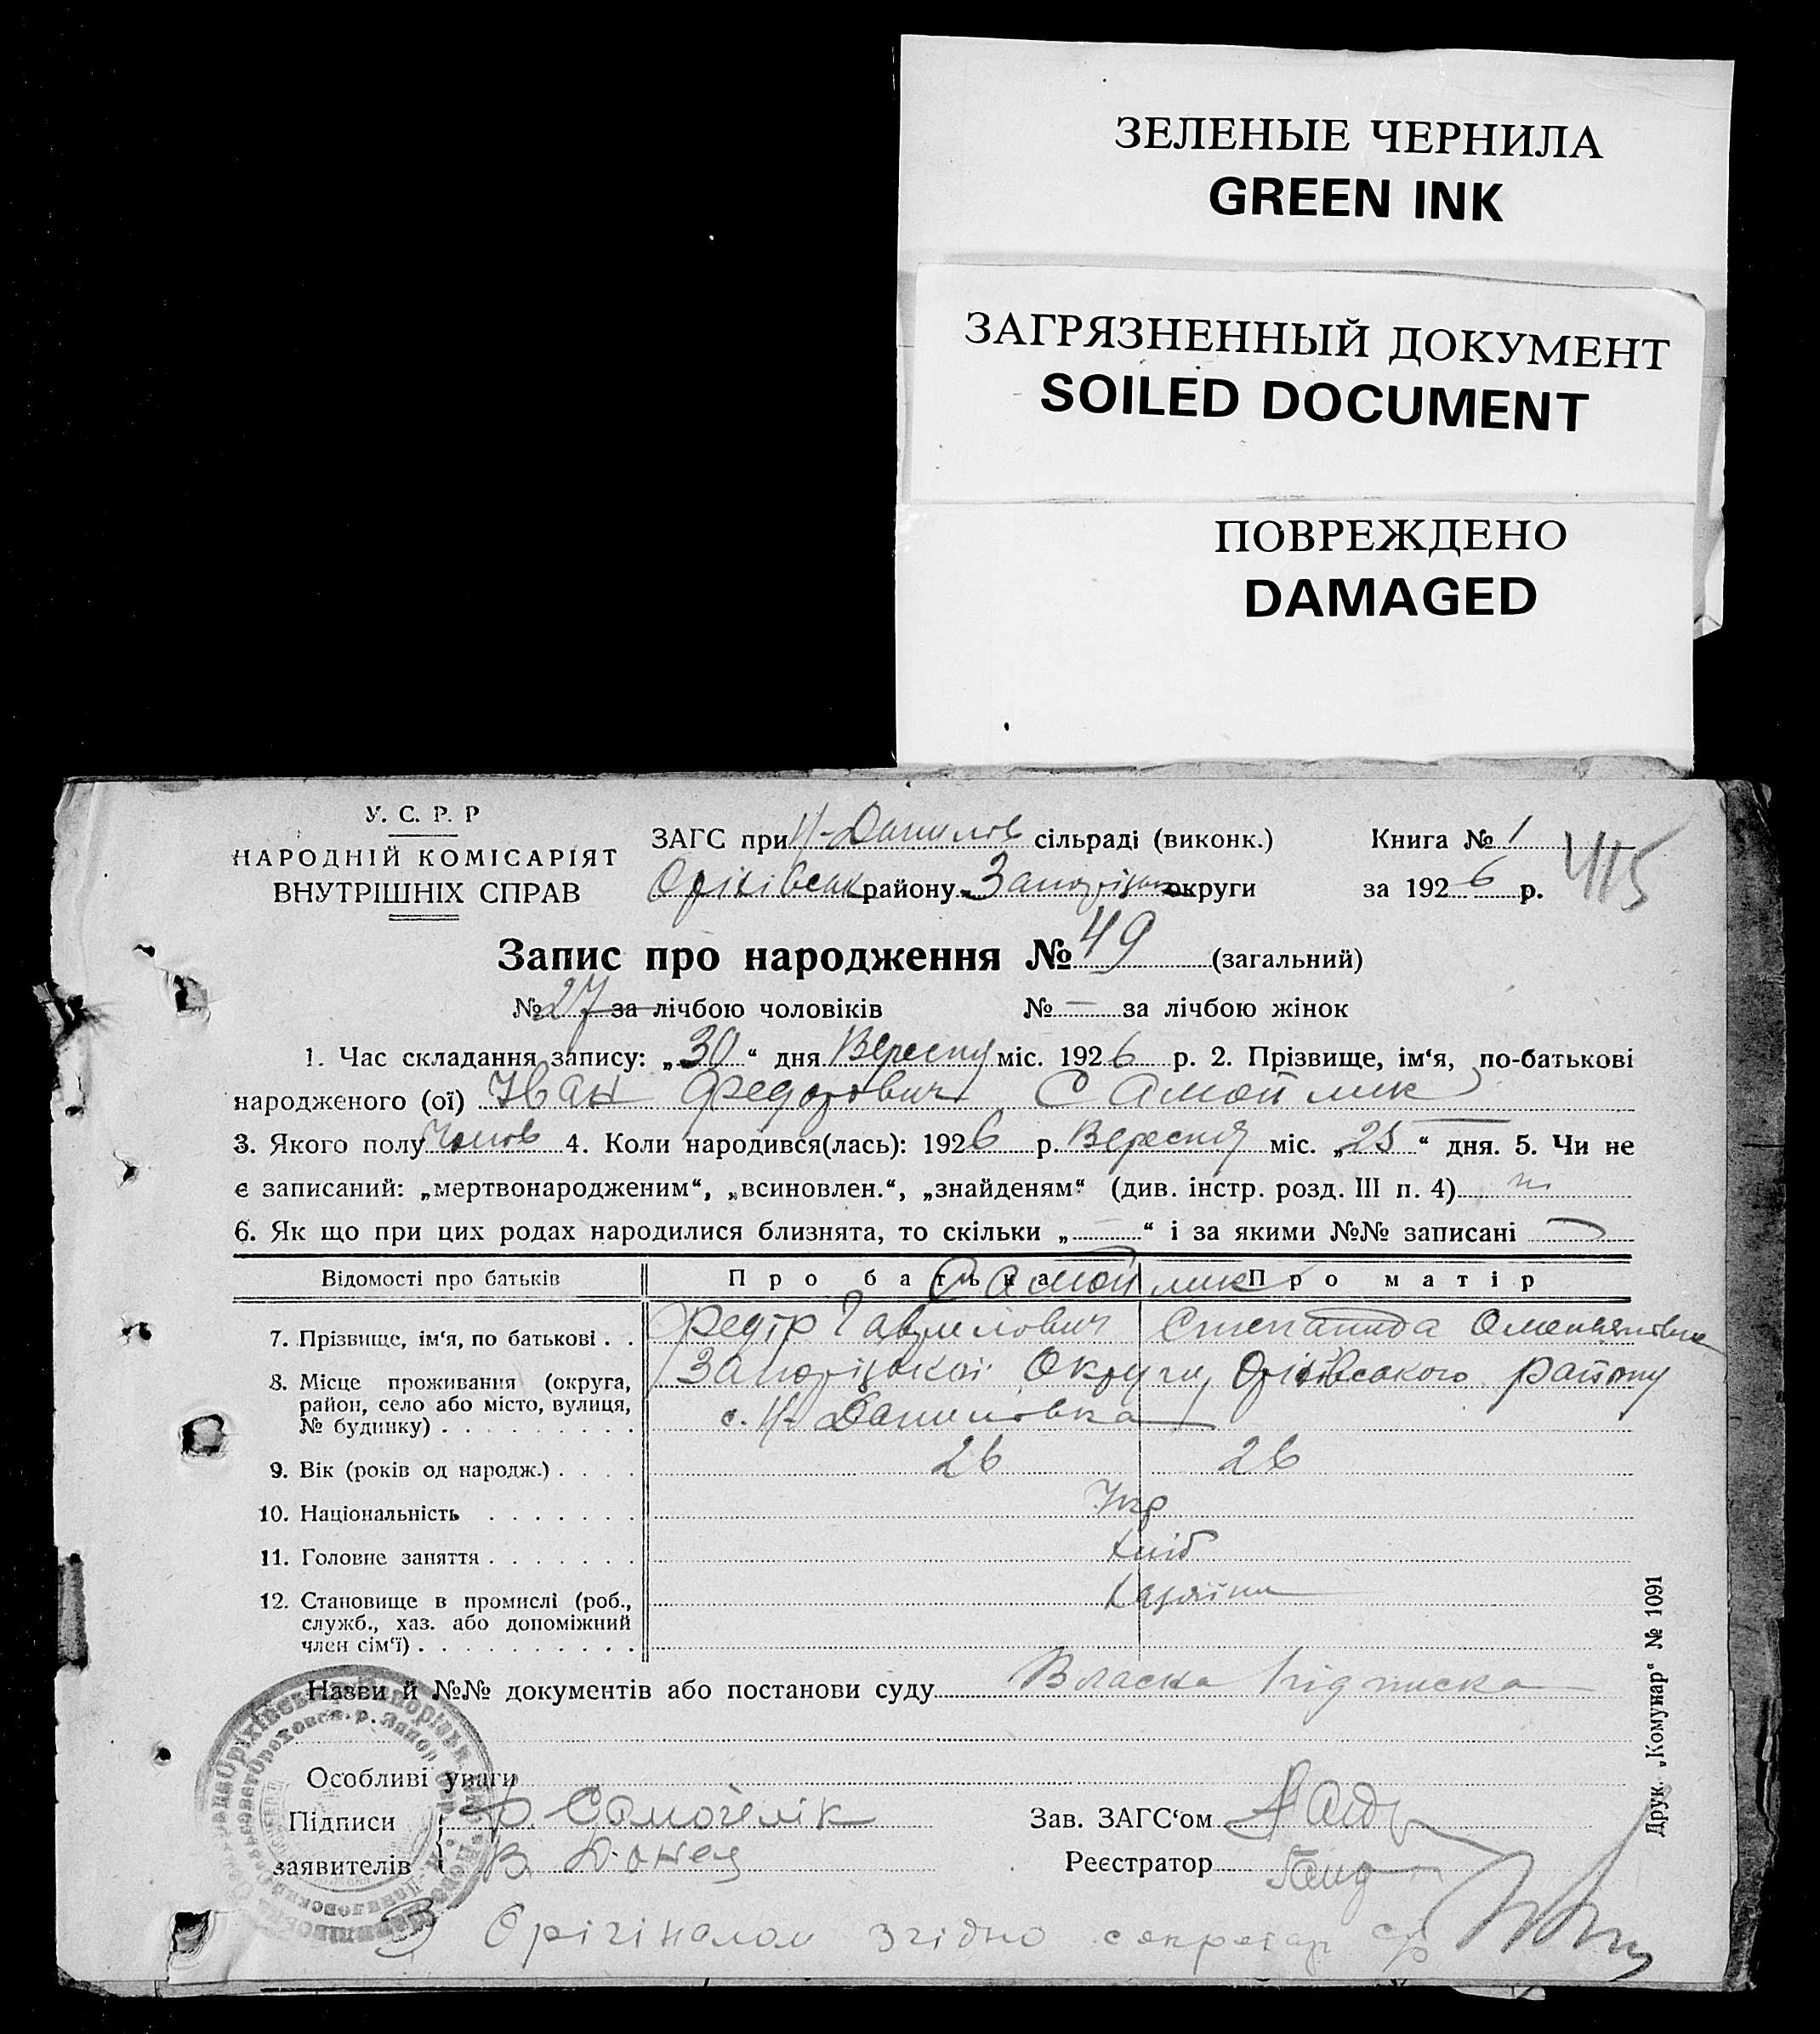 ЗЕЛЕНЫЕ ЧЕРНИЛА
GREEN INK
ЗАГРЯЗНЕННЫЙ ДОКУМЕНТ
SOILED DOCUMENT
ПОВРЕЖДЕНО
DAMAGED
У. С. Р. Р
НАРОДНІЙ КОМІСАРІЯТ
ВНУТРІШНІХ СПРАВ
ЗАГС при Н-Данилов сільраді (виконк.)
Оріхівськ району Запорізьк округи
Книга № 1
за 1926 р.
415
Запис про народження № 49 (загальний)
№ 27 за лічбою чоловіків № — за лічбою жінок
1. Час складання запису: „30“ дня Вересня міс. 1926 р. 2. Прізвище, ім‘я, по-батькові
народженого (ої) Іван Федорович Самойлик
3. Якого полу Чолов 4. Коли народився(лась): 1926 р. Вересня міс. „25“ дня. 5. Чи не
є записаний: „мертвонародженим“, „всиновлен.“, „знайденям“ (див. інстр. розд. III п. 4)
6. Як що при цих родах народилися близнята, то скільки „—“ і за якими №№ записані —
Відомості про батьків Про батька Про матір
Самойлик
7. Прізвище, ім‘я, по батькові . . Федір Гаврилович Степанида Омельянівна
8. Місце проживання (округа, Запорізької Округи, Оріхівського району
район, село або місто, вулиця, с. Н-Данилівка
№ будинку) . . . . . . . . .
9. Вік (років од народж.) . . . . 26 26
10. Національність . . . . . . . Укр
11. Головне заняття . . . . . . . Хліб
12. Становище в промислі (роб., Хазяїни
служб., хаз. або допоміжний
член сім‘ї) . . . . . . . . . .
Назви й №№ документів або постанови суду Власна підписка
Особливі уваги
Підписи Ф. Самойлік
заявителів В. Донец
Зав. ЗАГС‘ом
Реєстратор
З Орігіналом згідно секретар с/р
Друк. „Комунар“ № 1091